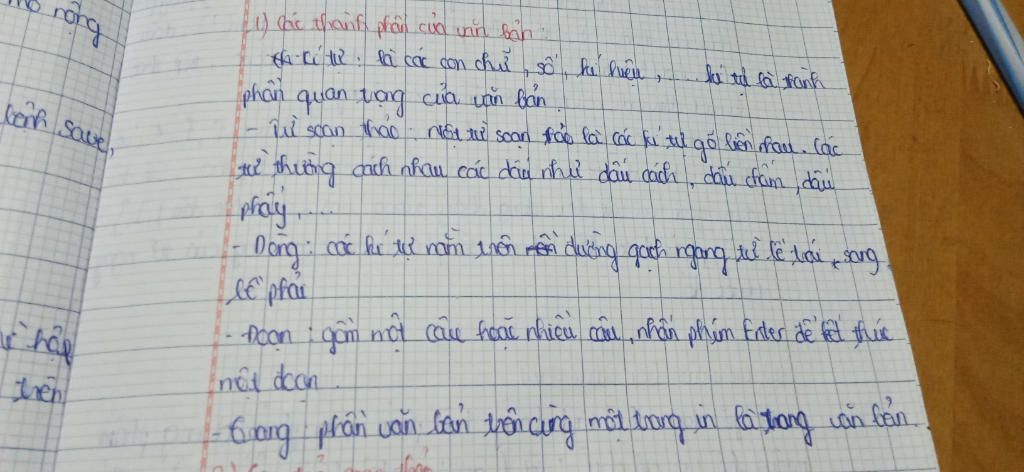 mở rộng
lệnh save,
trên
1) Các thành phần của văn bản:
- Kí tự: là các con chữ, số, kí hiệu, .... kí tự là thành
phần quan trọng của văn bản.
- Từ soạn thảo: một từ soạn thảo là các kí tự gõ liền nhau. Các
từ thường cách nhau các dấu như dấu cách, dấu chấm, dấu
phẩy, ....
- Dòng: các kí tự nằm trên đường gạch ngang từ lề trái sang
lề phải
- Đoạn: gồm một câu hoặc nhiều câu, nhấn phím Enter để kết thúc
một đoạn.
- Trang phần văn bản trên cùng một trang in là trang văn bản.